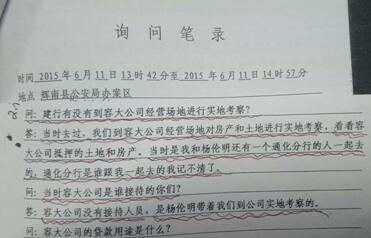 询问笔录
时间 2015 年 6 月 11 日 13 时 42 分至 2015 年 6 月 11 日 14 时 57 分
地点 辉南县公安局办案区
问: 建行有没有到容大公司经营场地进行实地考察?
答: 当时去过。我们到容大公司经营场地对房产和土地进行实地考察,看看容
大公司抵押的土地和房产。当时是我和杨伦明还有一个通化分行的人一起去
的,通化分行是谁跟我一起去的我记不清了。
问: 当时容大公司是谁接待的你们?
答: 容大公司没有接待人员,是杨伦明带着我们到公司实地考察的。
问: 容大公司的贷款用途是什么?